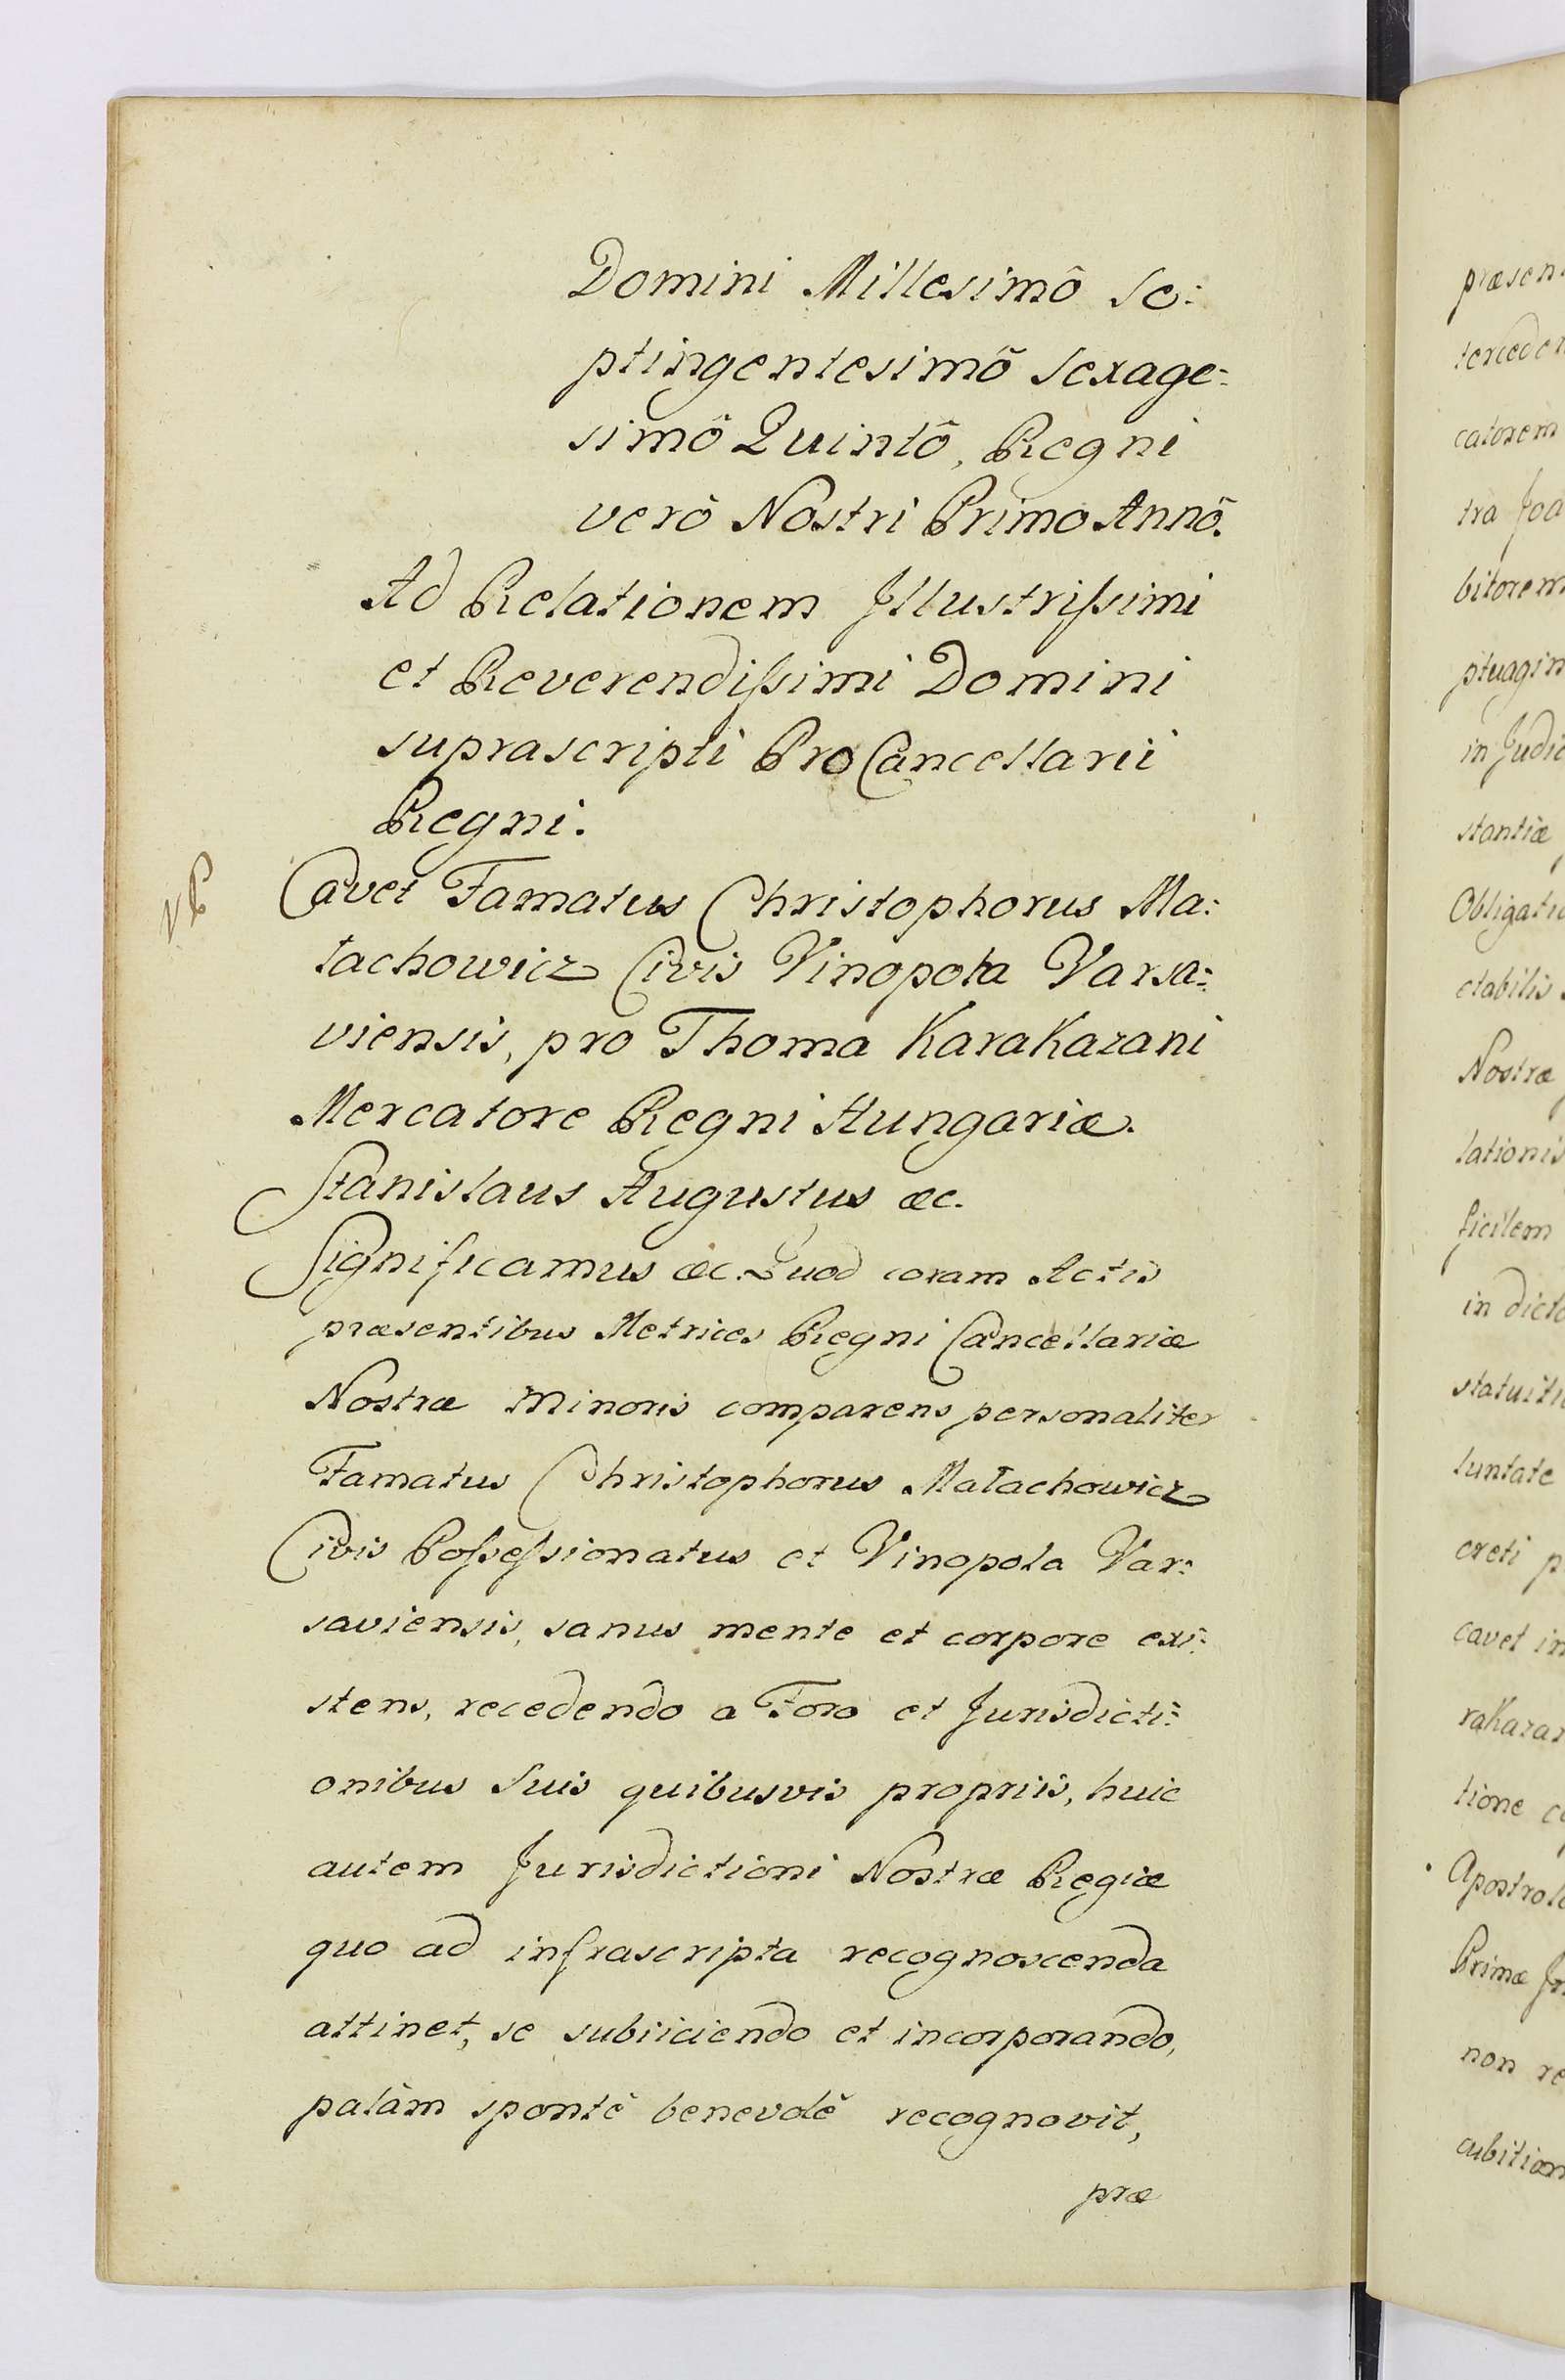 Domini Millesimô Se:
ptingentesimô Sexage:
simô Quintô, Regni
verô Nostri Primo Annô.
Ad Relationem Illustriſsimi
et Reverendiſsimi Domini
suprascripti ProCancellarii
Regni.
Cavet Famatus Christophorus Ma:
łachowicz Civis Vinopola Varsa:
viensis, pro Thoma Karakazani
Mercatore Regni Hungariæ.
Stanislaus Augustus &c.
Significamus &c. Quod coram Actis
præsentibus Metrices Regni Cancellariæ
Nostræ Minoris comparens personaliter
Famatus Christophorus Małachowicz
Civis Poſseſsionatus et Vinopola Var:
saviensis, sanus mente et corpore exi:
stens, recedendo a Foro et Jurisdicti:
onibus Suis quibusvis propriis, huic
autem Jurisdictioni Nostræ Regiæ
quo ad infrascripta recognoscenda
attinet, se subiiciendo et incorporando,
palâm spontè benevolè recognovit,
præ
præsen
terceden
catorem
tra Joa
bitorem
ptuagin
in Judic
stantiæ
Obligatio
ctabilis
Nostræ
lationis
ficilem
in dicto
statuiti
luntate
creti p
cavet in
rakazan
tione c
Apostrol
Primæ In
non re
cubition